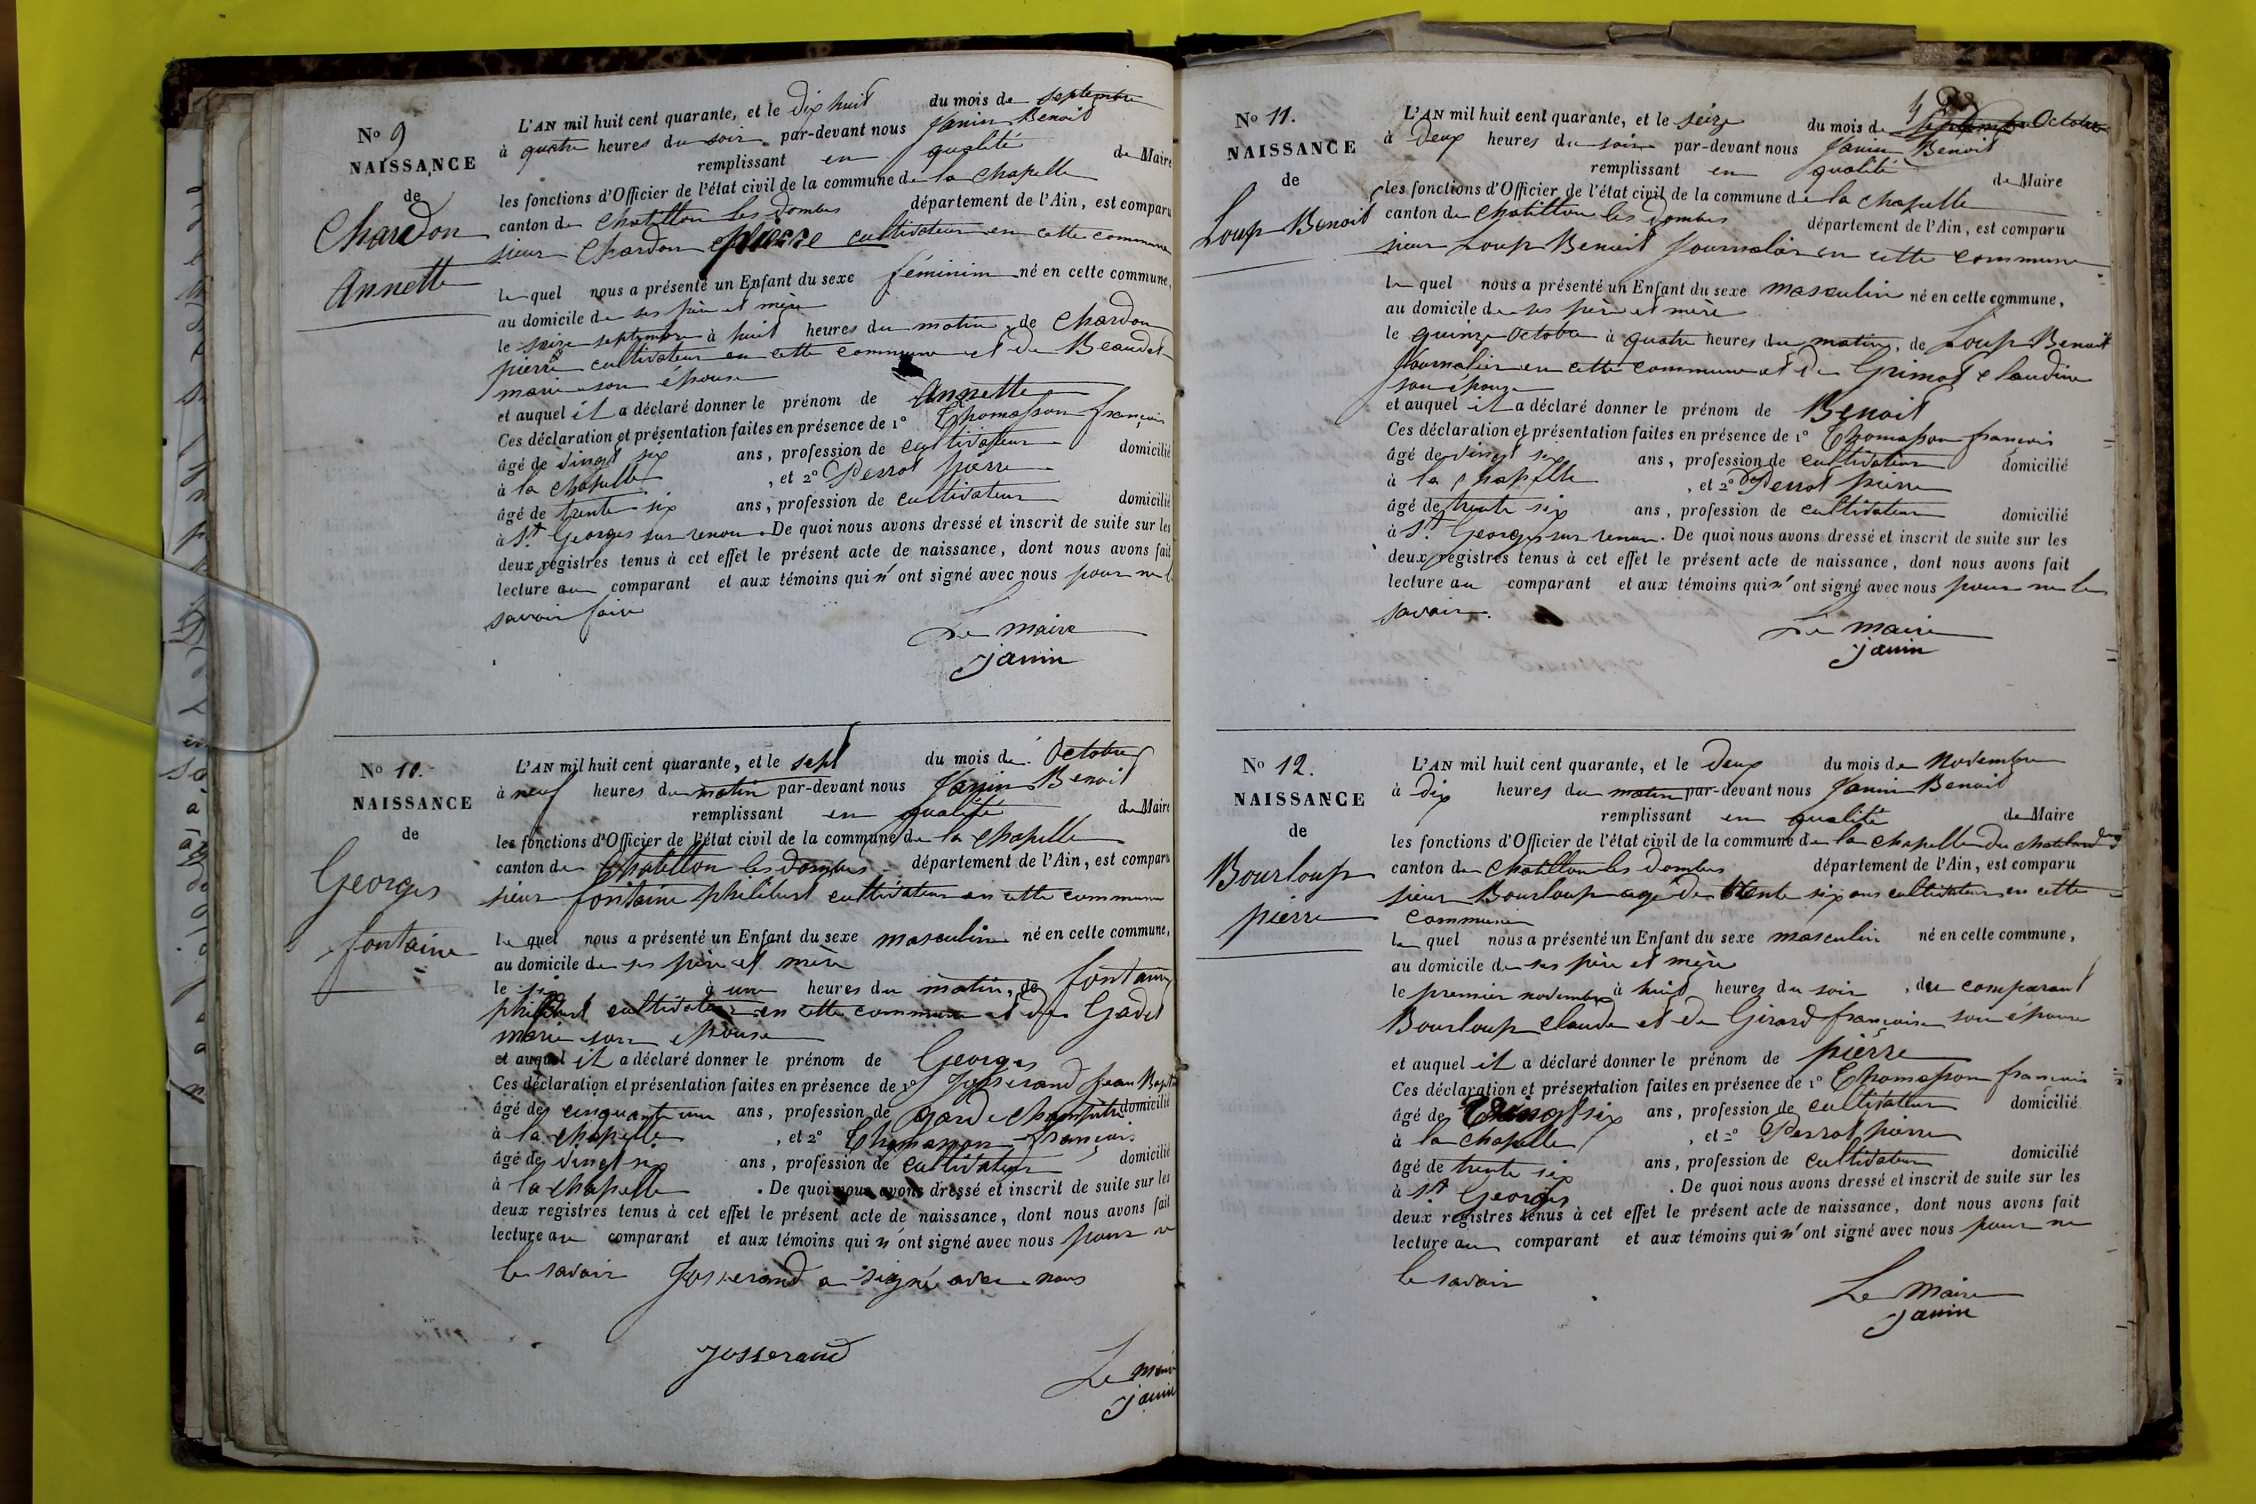 No 9
NAISSANCE
de
Chardon
Annette
L'AN mil huit cent quarante, et le dix huit du mois de septembre
à quatre heures du soir par-devant nous Janin Benoit
remplissant en qualité de Maire
les fonctions d'Officier de l'état civil de la commune de la Chapelle
canton de Chatillon les Dombes département de l'Ain, est comparu
sieur Chardon pierre cultivateur en cette commune
le quel nous a présenté un Enfant du sexe féminim né en cette commune,
au domicile de ses père et mère
le seize septembre à huit heures du matin, de Chardon
pierre cultivateur en cette commune et de Beaudet
marie son épouse
et auquel il a déclaré donner le prénom de Annette
Ces déclaration et présentation faites en présence de 1° Thomasson françois
âgé de vingt six ans, profession de cultivateur domicilié
à la Chapelle, et 2° Perrot pierre
âgé de trente six ans, profession de cultivateur domicilié
à St Georges sur renon. De quoi nous avons dressé et inscrit de suite sur les
deux registres tenus à cet effet le présent acte de naissance, dont nous avons fait
lecture au comparant et aux témoins qui n'ont signé avec nous pour ne le
savoir faire
Le maire
janin
No 10.
NAISSANCE
de
Georges
fontaine
L'AN mil huit cent quarante, et le sept du mois de Octobre
à neuf heures du matin par-devant nous Janin Benoit
remplissant en qualité de Maire
les fonctions d'Officier de l'état civil de la commune de la Chapelle
canton de Chatillon les Dombes département de l'Ain, est comparu
sieur fontaine philibert cultivateur en cette commune
le quel nous a présenté un Enfant du sexe masculin né en cette commune,
au domicile de ses père et mère
le six à une heures du matin, de fontaine
philibert cultivateur en cette commune et de Gadet
marie son épouse
et auquel il a déclaré donner le prénom de Georges
Ces déclaration et présentation faites en présence de 1° Josserand Jean Bapt
âgé de cinquante un ans, profession de garde champêtre domicilié
à la chapelle, et 2° Thomasson françois
âgé de vingt six ans, profession de cultivateur domicilié
à la Chapelle. De quoi nous avons dressé et inscrit de suite sur les
deux registres tenus à cet effet le présent acte de naissance, dont nous avons fait
lecture au comparant et aux témoins qui n'ont signé avec nous pour ne
le savoir Josserand a signé avec nous
Josserand
Le maire
janin
4
No 11.
NAISSANCE
de
Loup Benoit
L'AN mil huit cent quarante, et le seize du mois de Septembre Octobre
à Deux heures du soir par-devant nous Janin Benoit
remplissant en qualité de Maire
les fonctions d'Officier de l'état civil de la commune de la Chapelle
canton de Chatillon les Dombes département de l'Ain, est comparu
sieur Loup Benoit Journalier en cette commune
le quel nous a présenté un Enfant du sexe masculin né en cette commune,
au domicile de ses père et mère
le quinze Octobre à quatre heures du matin, de Loup Benoit
Journalier en cette commune et de Grimot Claudine
son épouse
et auquel il a déclaré donner le prénom de Benoit
Ces déclaration et présentation faites en présence de 1° Thomasson françois
âgé de vingt six ans, profession de cultivateur domicilié
à la Chapelle, et 2° Perrot pierre
âgé de trente six ans, profession de cultivateur domicilié
à St. Georges sur renon. De quoi nous avons dressé et inscrit de suite sur les
deux registres tenus à cet effet le présent acte de naissance, dont nous avons fait
lecture au comparant et aux témoins qui n'ont signé avec nous pour ne le
savoir.
Le maire
janin
No 12.
NAISSANCE
de
Bourloup
pierre
L'AN mil huit cent quarante, et le Deux du mois de Novembre
à Dix heures du matin par-devant nous Janin Benoit
remplissant en qualité de Maire
les fonctions d'Officier de l'état civil de la commune de la Chapelle du chatelard
canton de Chatillon les Dombes département de l'Ain, est comparu
sieur Bourloup agé de trente six ans cultivateur en cette
commune
le quel nous a présenté un Enfant du sexe masculin né en cette commune,
au domicile de ses père et mère
le premier novembre à huit heures du soir, du comparant
Bourloup Claude et de Girard françoise son épouse
et auquel il a déclaré donner le prénom de pierre
Ces déclaration et présentation faites en présence de 1° Thomasson françois
âgé de vingt six ans, profession de cultivateur domicilié
à la Chapelle, et 2° Perrot pierre
âgé de trente six ans, profession de cultivateur domicilié
à St Georges. De quoi nous avons dressé et inscrit de suite sur les
deux registres tenus à cet effet le présent acte de naissance, dont nous avons fait
lecture au comparant et aux témoins qui n'ont signé avec nous pour ne
le savoir
Le Maire
janin